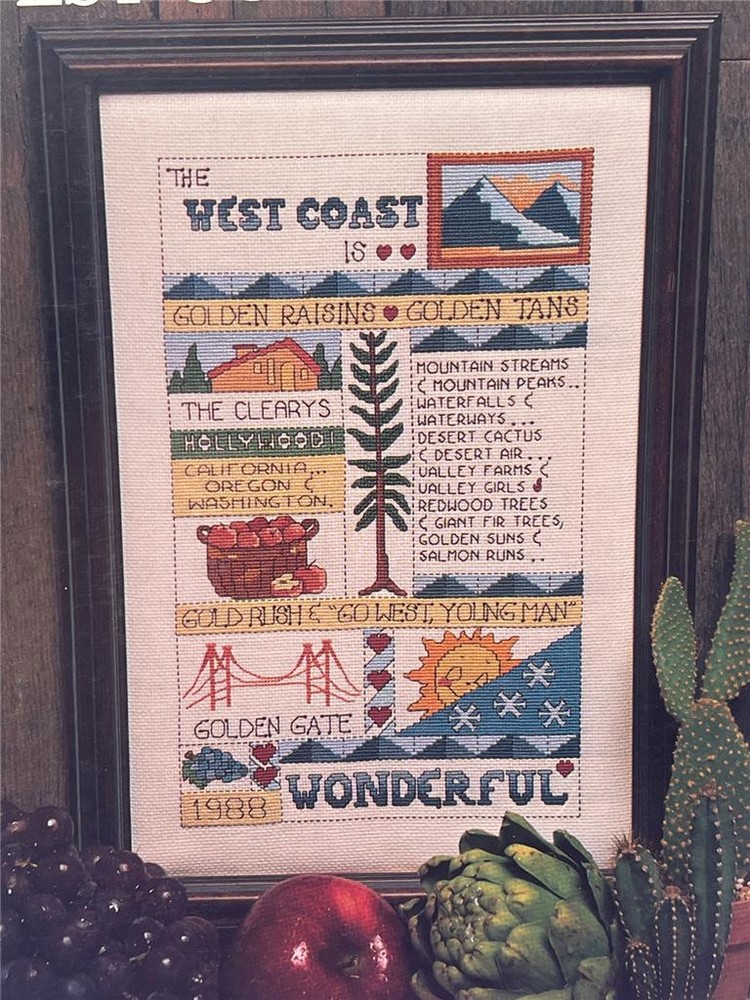 THE
WEST COAST
IS
GOLDEN RAISINS GOLDEN TANS
THE CLEARYS
HOLLYWOOD!
CALIFORNIA...
OREGON &
WASHINGTON.
MOUNTAIN STREAMS
& MOUNTAIN PEAKS..
WATERFALLS &
WATERWAYS...
DESERT CACTUS
& DESERT AIR...
VALLEY FARMS &
VALLEY GIRLS
REDWOOD TREES
& GIANT FIR TREES,
GOLDEN SUNS &
SALMON RUNS..
GOLD RUSH & "GO WEST, YOUNG MAN"
GOLDEN GATE
1988
WONDERFUL